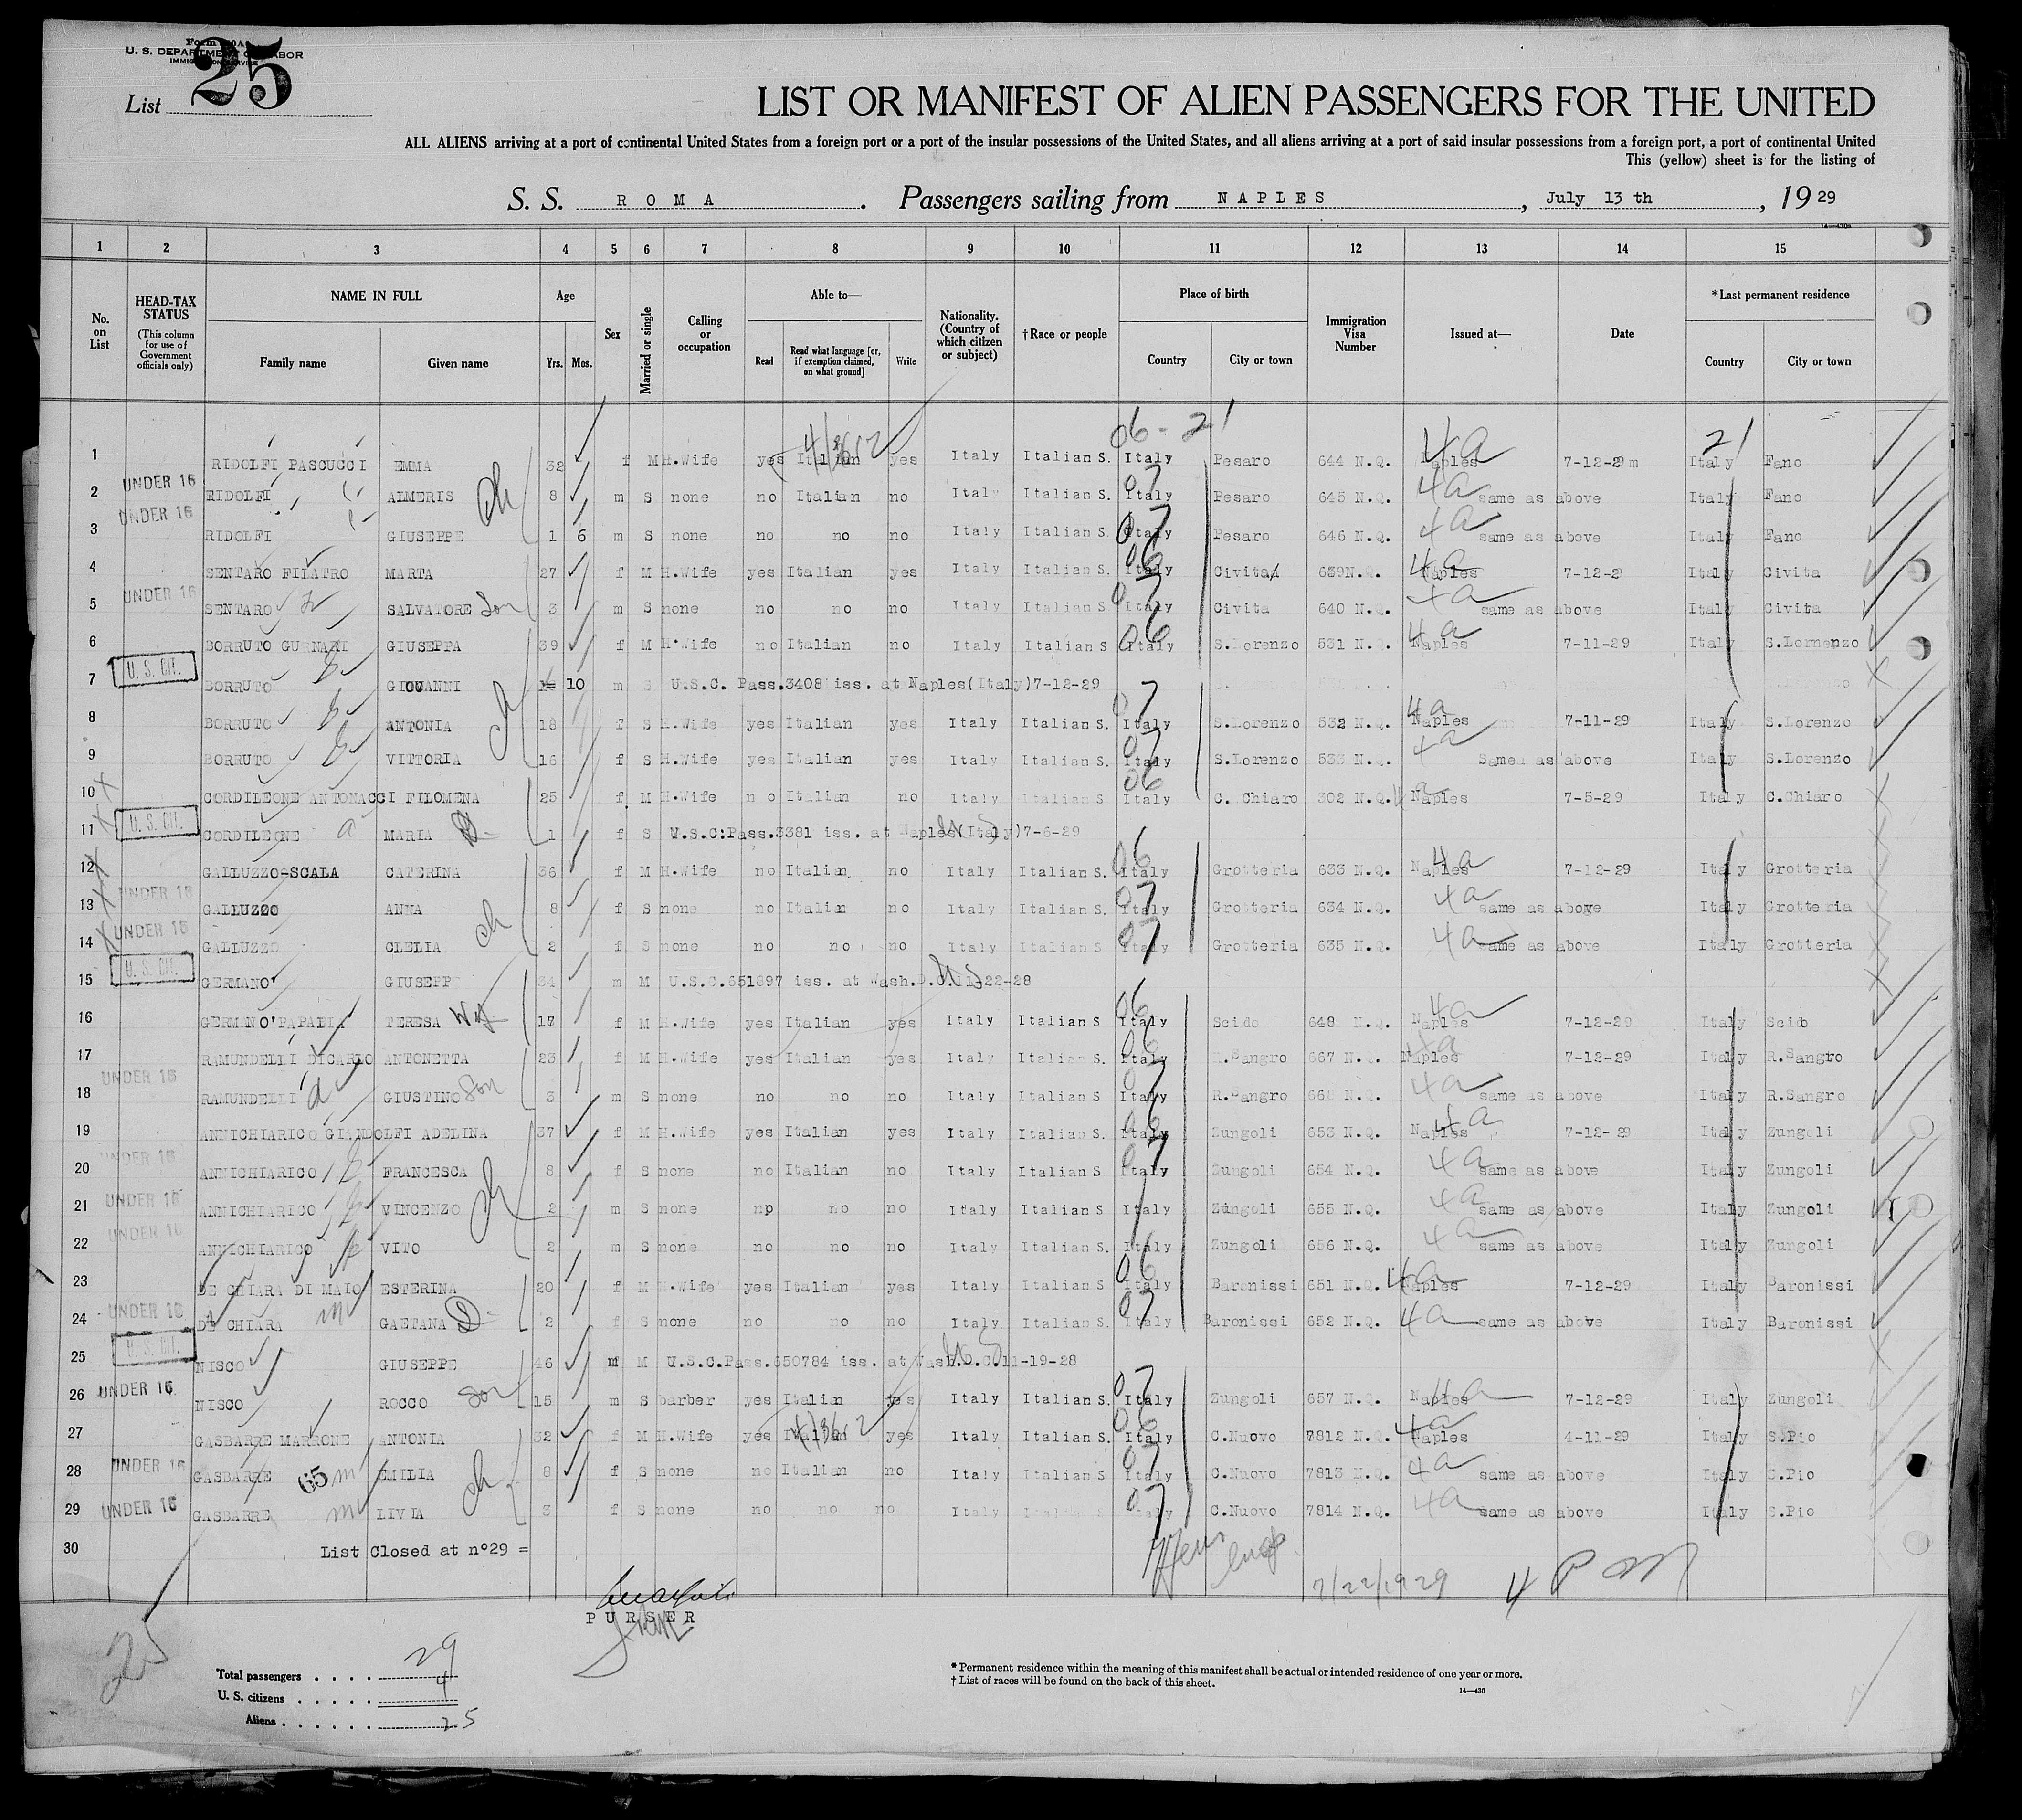 Form 500A
U. S. DEPARTMENT OF LABOR
IMMIGRATION SERVICE
List 25
LIST OR MANIFEST OF ALIEN PASSENGERS FOR THE UNITED
ALL ALIENS arriving at a port of continental United States from a foreign port or a port of the insular possessions of the United States, and all aliens arriving at a port of said insular possessions from a foreign port, a port of continental United
This (yellow) sheet is for the listing of
S. S. ROMA. Passengers sailing from NAPLES, July 13 th, 19 29
1 2 3 4 5 6 7 8 9 10 11 12 13 14 15
No. on List HEAD-TAX STATUS (This column for use of Government officials only) NAME IN FULL Family name Given name Age Yrs. Mos. Sex Married or single Calling or occupation Able to— Read Read what language [or, if exemption claimed, on what ground] Write Nationality. (Country of which citizen or subject) †Race or people Place of birth Country City or town Immigration Visa Number Issued at— Date *Last permanent residence Country City or town
06-21 4a 21
1 RIDOLFI PASCUCCI EMMA 32 f M H.Wife yes Italian yes Italy Italian S. Italy Pesaro 644 N.Q. Naples 7-12-29 Italy Fano
2 UNDER 16 RIDOLFI ALMERIS 8 m S none no Italian no Italy Italian S. Italy Pesaro 645 N.Q. 4a same as above Italy Fano
3 UNDER 16 RIDOLFI GIUSEPPE 1 6 m S none no no no Italy Italian S. Italy Pesaro 646 N.Q. 4a same as above Italy Fano
4 SENTARO FILATRO MARTA 27 f M H.Wife yes Italian yes Italy Italian S. Italy Civita 639 N.Q. 4a Naples 7-12-2 Italy Civita
5 UNDER 16 SENTARO SALVATORE Son 3 m S none no no no Italy Italian S. Italy Civita 640 N.Q. 4a same as above Italy Civita
6 BORRUTO GURNARI GIUSEPPA 39 f M H.Wife no Italian no Italy Italian S Italy S.Lorenzo 531 N.Q. 4a Naples 7-11-29 Italy S.Lornenzo
7 U. S. CIT. BORRUTO GIOVANNI 10 m S U.S.C. Pass.3408 iss. at Naples(Italy)7-12-29
8 BORRUTO ANTONIA 18 f S H.Wife yes Italian yes Italy Italian S. Italy S.Lorenzo 532 N.Q. 4a Naples 7-11-29 Italy S.Lorenzo
9 BORRUTO VITTORIA 16 f S H.Wife yes Italian yes Italy Italian S. Italy S.Lorenzo 533 N.Q. 4a Same as above Italy S.Lorenzo
10 CORDILEONE ANTONACCI FILOMENA 25 f M H.Wife no Italian no Italy Italian S Italy C. Chiaro 302 N.Q. Naples 7-5-29 Italy C.Chiaro
11 U. S. CIT. CORDILEONE MARIA 1 f S U.S.C:Pass.3381 iss. at Naples(Italy)7-6-29
12 GALLUZZO-SCALA CATERINA 36 f M H.Wife no Italian no Italy Italian S. Italy Grotteria 633 N.Q. 4a Naples 7-12-29 Italy Grotteria
13 UNDER 16 GALLUZZO ANNA 8 f S none no Italian no Italy Italian S. Italy Grotteria 634 N.Q. 4a same as above Italy Grotteria
14 UNDER 16 GALLUZZO CLELIA 2 f S none no no no Italy Italian S Italy Grotteria 635 N.Q. 4a same as above Italy Grotteria
15 U. S. CIT. GERMANO' GIUSEPP 34 m M U.S.C.651897 iss. at Wash.D.C.11-22-28
16 GERMANO'PAPALIA TERESA Wif 17 f M H.Wife yes Italian yes Italy Italian S Italy Scido 648 N.Q. 4a Naples 7-12-29 Italy Scido
17 RAMUNDELLI DICARLO ANTONETTA 23 f M H.Wife yes Italian yes Italy Italian S Italy R.Sangro 667 N.Q. 4a Naples 7-12-29 Italy R.Sangro
18 UNDER 16 RAMUNDELLI GIUSTINO Son 3 m S none no no no Italy Italian S. Italy R.Sangro 668 N.Q. 4a same as above Italy R.Sangro
19 ANNICHIARICO GIANDOLFI ADELINA 37 f M H.Wife yes Italian yes Italy Italian S. Italy Zungoli 653 N.Q. 4a Naples 7-12-29 Italy Zungoli
20 UNDER 16 ANNICHIARICO FRANCESCA 8 f S none no Italian no Italy Italian S. Italy Zungoli 654 N.Q. 4a same as above Italy Zungoli
21 UNDER 16 ANNICHIARICO VINCENZO 2 m S none np no no Italy Italian S. Italy Zungoli 655 N.Q. 4a same as above Italy Zungoli
22 UNDER 16 ANNICHIARICO VITO 2 m S none no no no Italy Italian S. Italy Zungoli 656 N.Q. 4a same as above Italy Zungoli
23 DE CHIARA DI MAIO ESTERINA 20 f M H.Wife yes Italian yes Italy Italian S. Italy Baronissi 651 N.Q. 4a Naples 7-12-29 Italy Baronissi
24 UNDER 16 DE CHIARA GAETANA 2 f S none no no no Italy Italian S. Italy Baronissi 652 N.Q. 4a same as above Italy Baronissi
25 U. S. CIT. NISCO GIUSEPPE 46 m M U.S.C.Pass.650784 iss. at Wash.D.C.11-19-28
26 UNDER 16 NISCO ROCCO Son 15 m S barber yes Italin yes Italy Italian S. Italy Zungoli 657 N.Q. 4a Naples 7-12-29 Italy Zungoli
27 GASBARRE MARRONE ANTONIA 32 f M H.Wife yes Italian yes Italy Italian S. Italy C.Nuovo 7812 N.Q. 4a Naples 4-11-29 Italy S.Pio
28 UNDER 16 GASBARRE 65 EMILIA 8 f S none no Italian no Italy Italian S. Italy C.Nuovo 7813 N.Q. 4a same as above Italy S.Pio
29 UNDER 16 GASBARRE LIVIA 3 f S none no no no Italy Italian S. Italy C.Nuovo 7814 N.Q. 4a same as above Italy S.Pio
30 List Closed at n°29 =
7/22/1929
PURSER
25
Total passengers . . . . 29
U. S. citizens . . . . . 4
Aliens . . . . . . 25
* Permanent residence within the meaning of this manifest shall be actual or intended residence of one year or more.
† List of races will be found on the back of this sheet.
14—430